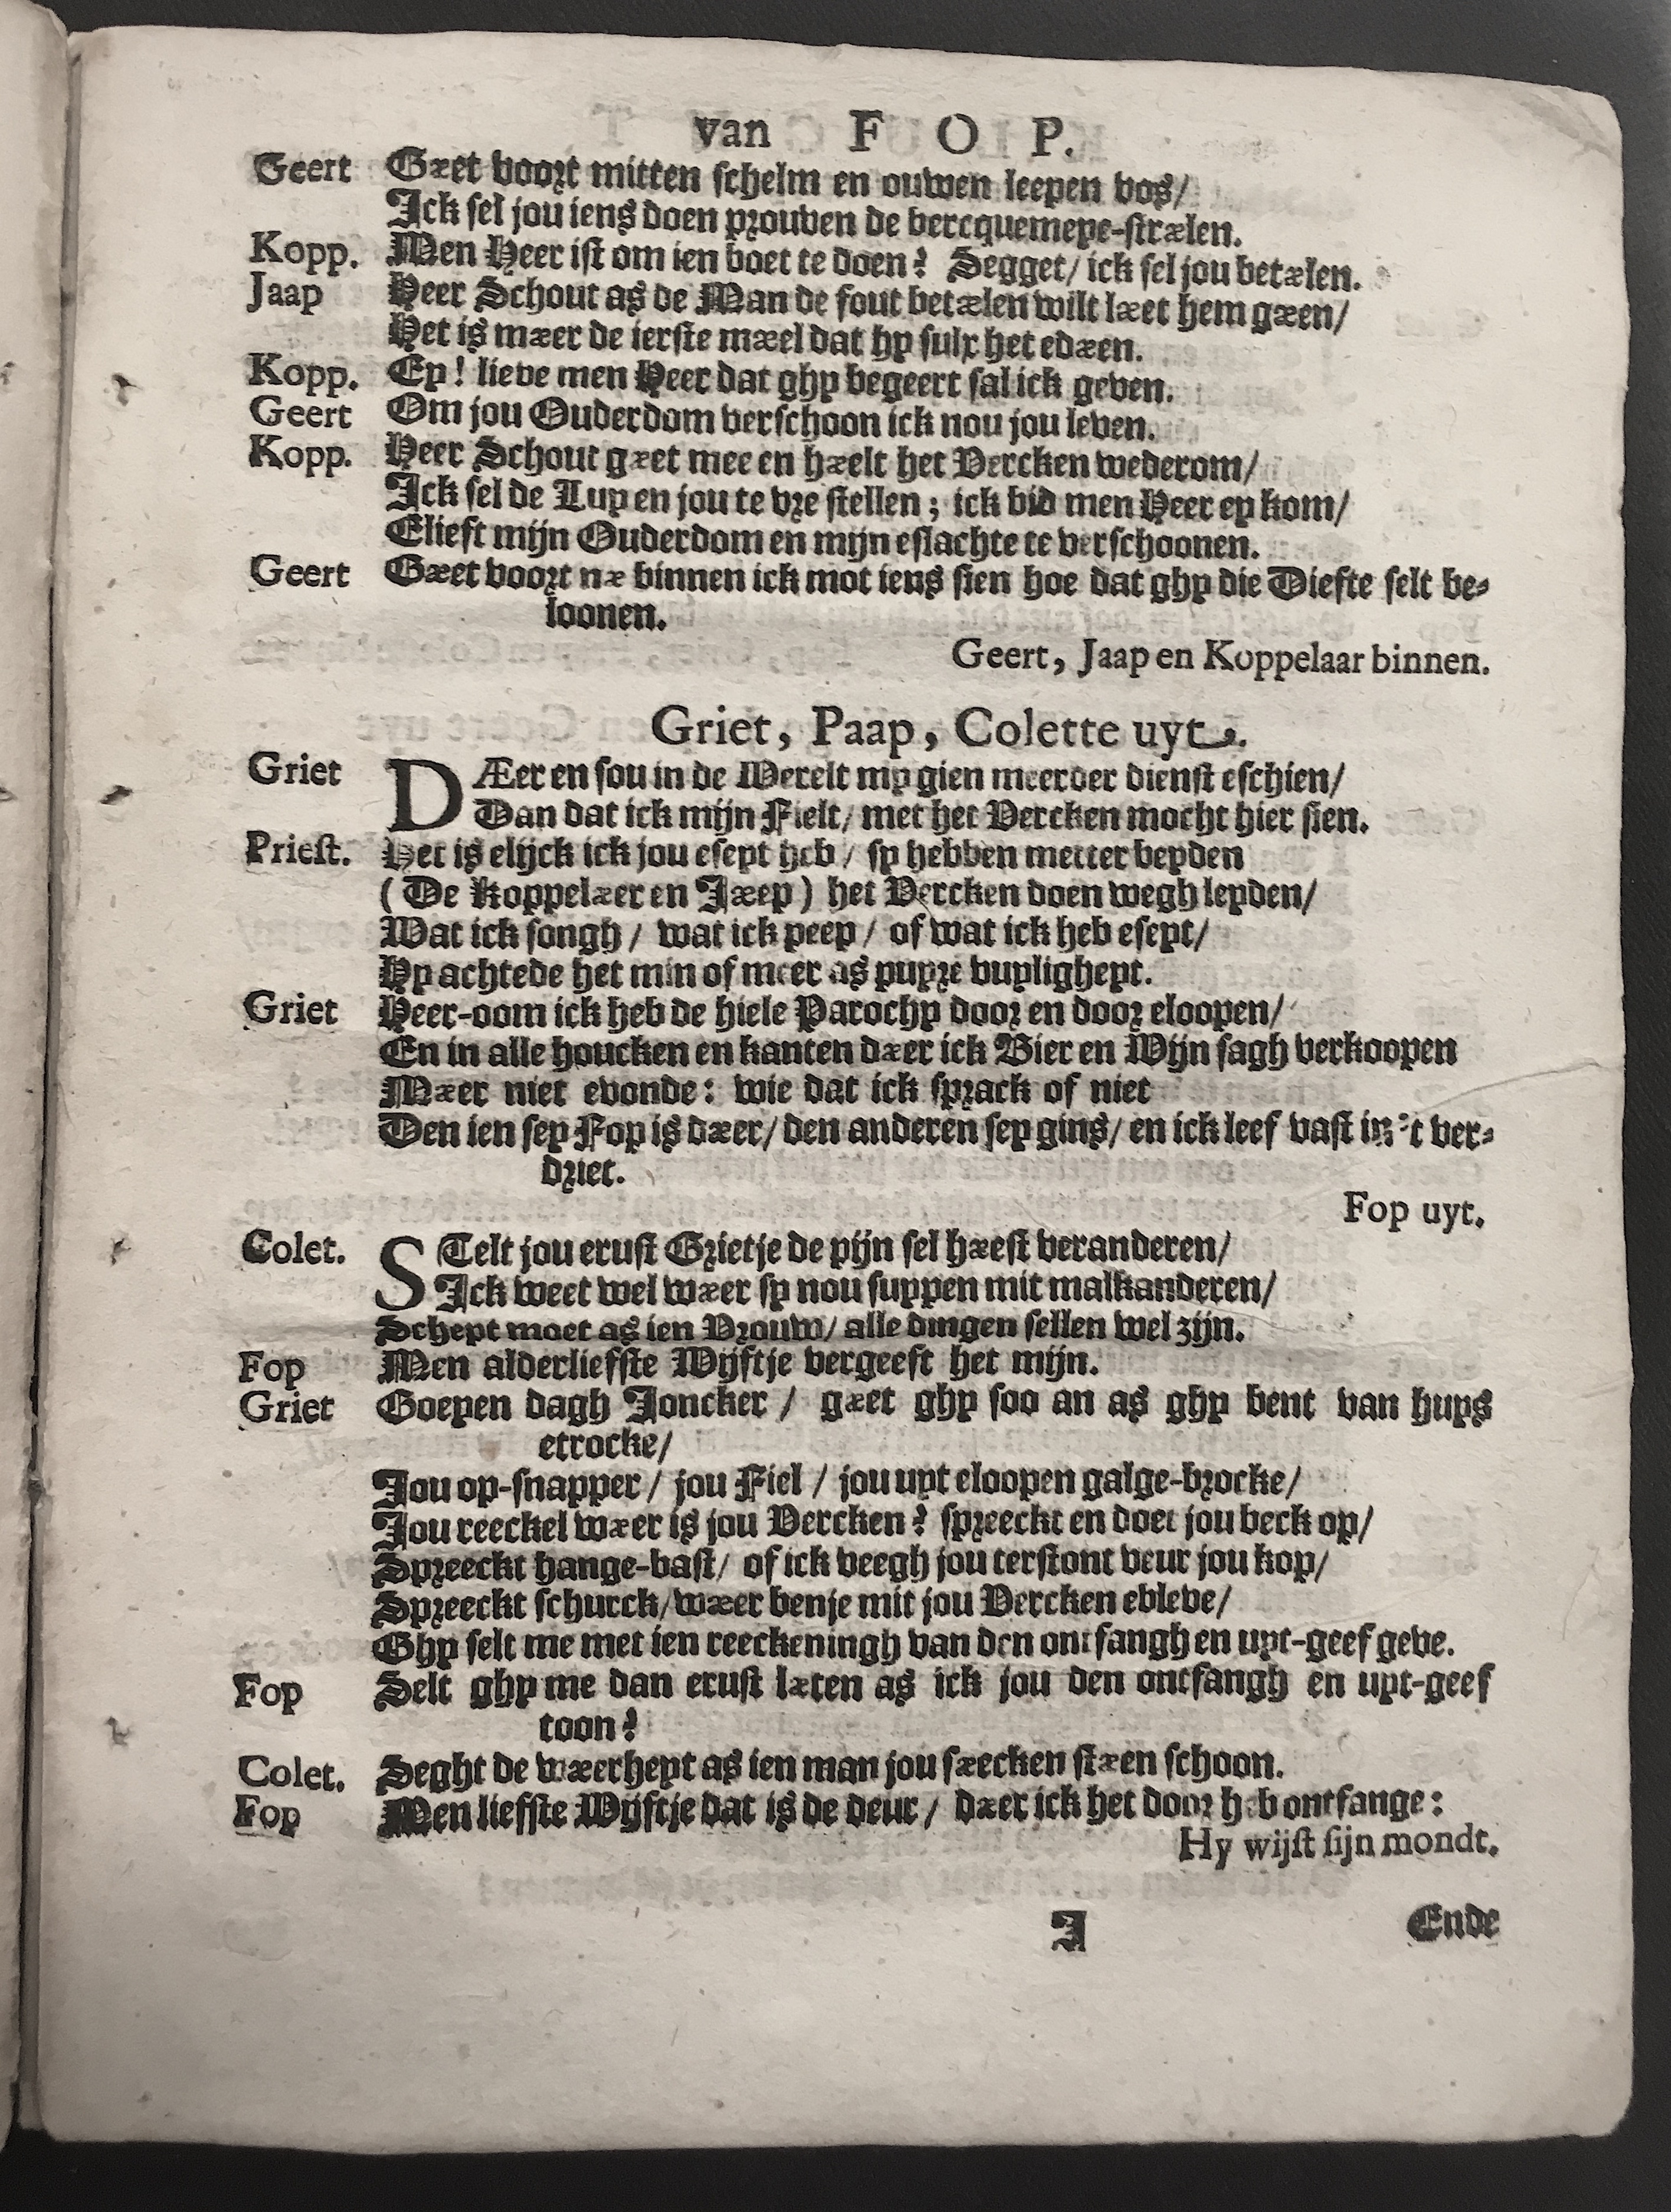 van F O P.
Geert Gæet voort mitten schelm en ouwen leepen vos/
Ick sel jou iens doen prouven de vercquemeye-strælen.
Kopp. Men Heer ist om ien boet te doen? Segget/ ick sel jou betælen.
Jaap Heer Schout as de Man de fout betælen wilt læet hem gæen/
Het is mæer de ierste mæel dat hy sulx het edæen.
Kopp. Ey! lieve men Heer dat ghy begeert sal ick geven.
Geert Om jou Ouderdom verschoon ick nou jou leven.
Kopp. Heer Schout gæet mee en hæelt het Vercken wederom/
Ick sel de Luy en jou te vre stellen; ick bid men Heer ey kom/
Elieft mijn Ouderdom en mijn eslachte te verschoonen.
Geert Gæet voort næ binnen ick mot iens sien hoe dat ghy die Diefte selt be-
loonen.
Geert, Jaap en Koppelaar binnen.
Griet, Paap, Colette uyt.
Griet DÆer en sou in de Werelt my gien meerder dienst eschien/
Dan dat ick mijn Fielt/ met het Vercken mocht hier sien.
Priest. Het is elijck ick jou eseyt heb/ sy hebben metter beyden
(De Koppelæer en Jæep) het Vercken doen wegh leyden/
Wat ick songh/ wat ick peep/ of wat ick heb eseyt/
Hy achtede het min of meer as puyre vuyligheyt.
Griet Heer-oom ick heb de hiele Parochy door en door eloopen/
En in alle houcken en kanten dær ick Bier en Wijn sagh verkoopen
Mæer niet evonde: wie dat ick sprack of niet
Den ien sey Fop is dæer/ den anderen sey gins/ en ick leef vast in 't ver-
driet.
Fop uyt.
Colet. STelt jou erust Grietje de pijn sel hæest veranderen/
Ick weet wel wæer sy nou suypen mit malkanderen/
Schept moet as ien Vrouw/ alle dingen sellen wel zijn.
Fop Men alderliefste Wijftje vergeeft het mijn.
Griet Goeyen dagh Joncker/ gæet ghy soo an as ghy bent van huys
etrocke/
Jou op-snapper/ jou Fiel/ jou uyt eloopen galge-brocke/
Jou reeckel wæer is jou Vercken? spreeckt en doet jou beck op/
Spreeckt hange-bast/ of ick veegh jou terstont veur jou kop/
Spreeckt schurck/ wæer benje mit jou Vercken ebleve/
Ghy selt me met ien reeckeningh van den ontfangh en uyt-geef geve.
Fop Selt ghy me dan erust læten as ick jou den ontfangh en uyt-geef
toon?
Colet. Seght de wæerheyt as ien man jou sæecken stæen schoon.
Fop Men liefste Wijftje dat is de deur/ dæer ick het door heb ontfange:
Hy wijst sijn mondt.
I Ende